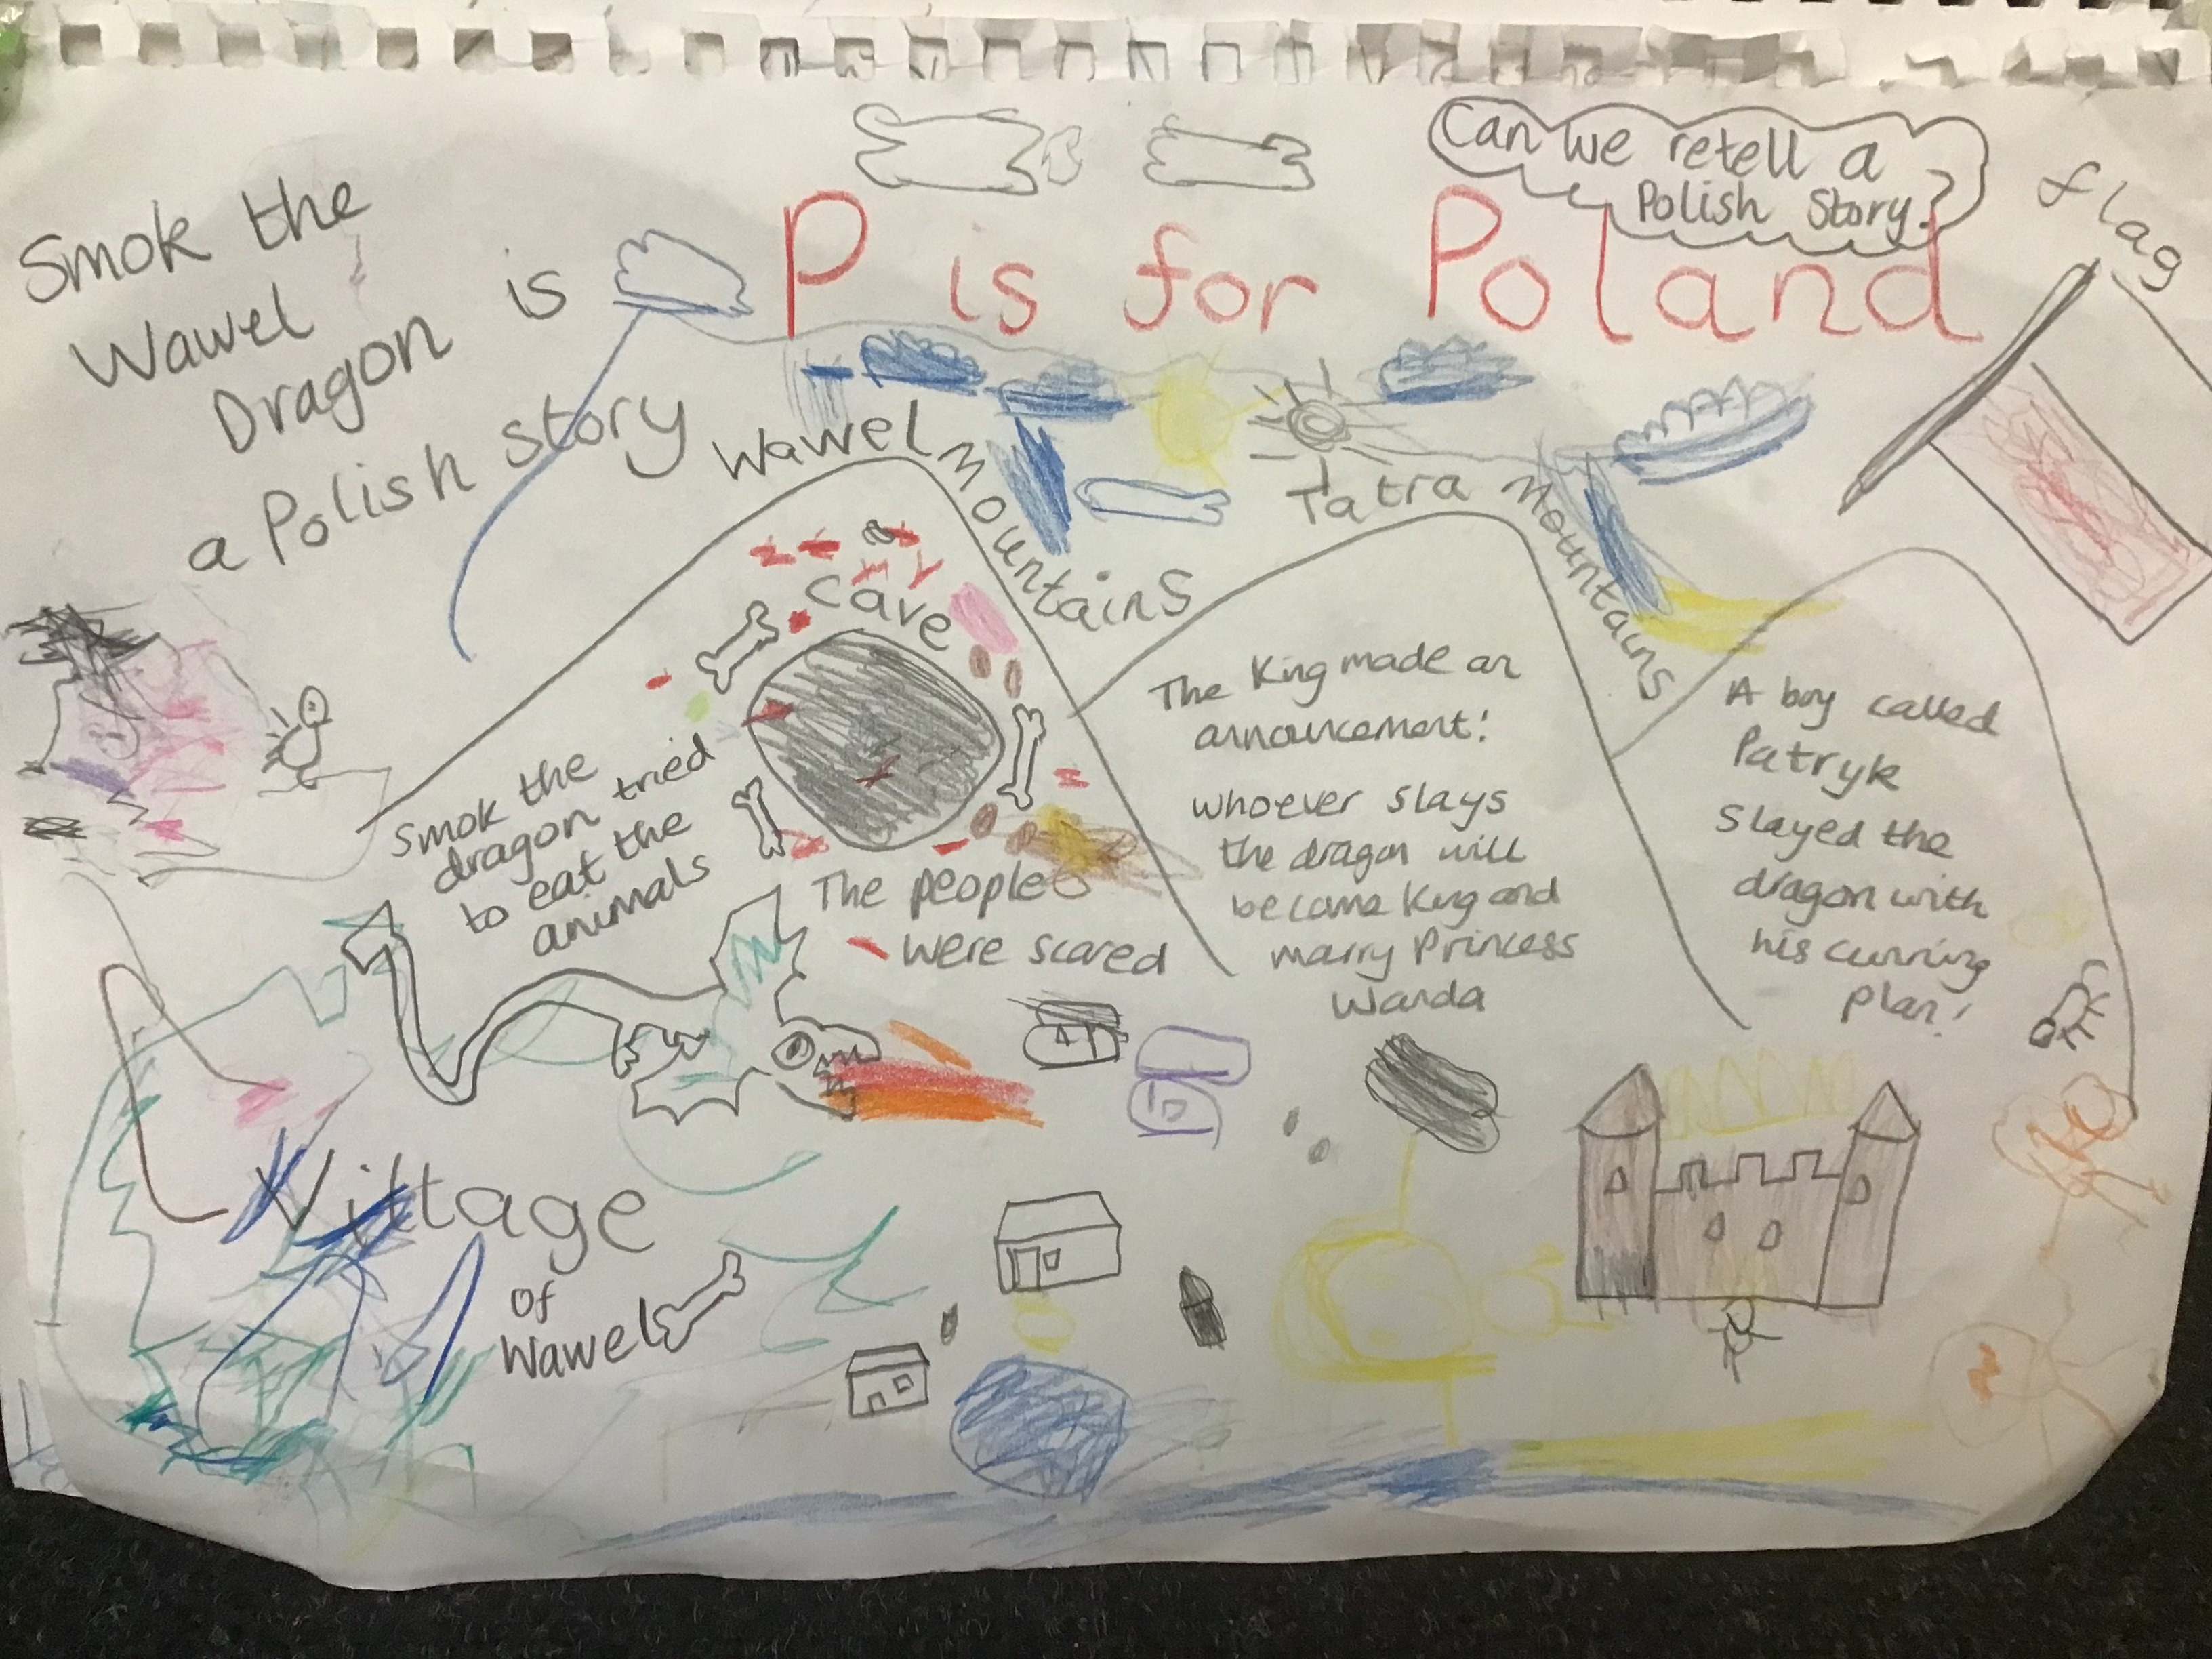 Can we retell a
Polish Story?
flag
P is for Poland
Smok the
Wawel
Dragon is
a Polish story
Wawel Mountains
Tatra Mountains
cave
Smok the
dragon tried
to eat the
animals
The people
were scared
The King made an
announcement!
whoever slays
the dragon will
become King and
marry Princess
Wanda
A boy called
Patryk
Slayed the
dragon with
his cunning
plan!
Village
of
Wawel